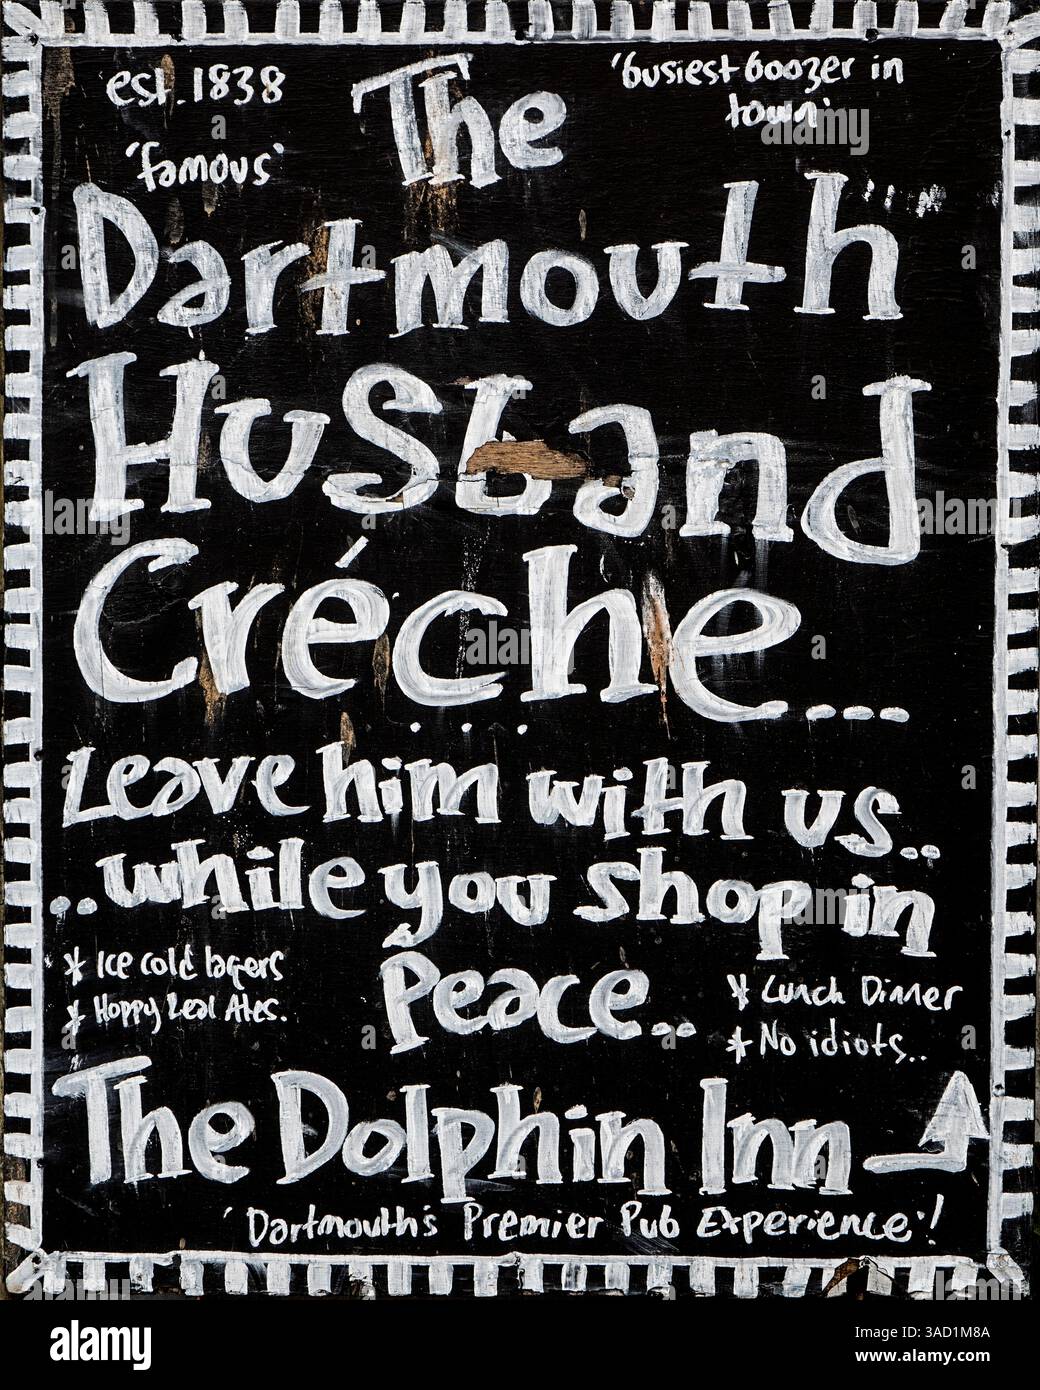 est. 1838
'busiest boozer in
town'
The
'famous'
Dartmouth
Husband
Créche...
Leave him with us..
..while you shop in
Peace..
* Ice cold lagers
* Hoppy Real Ales.
* Lunch Dinner
* No idiots..
The Dolphin Inn
'Dartmouth's Premier Pub Experience'!
alamy
Image ID: 3AD1M8A
www.alamy.com